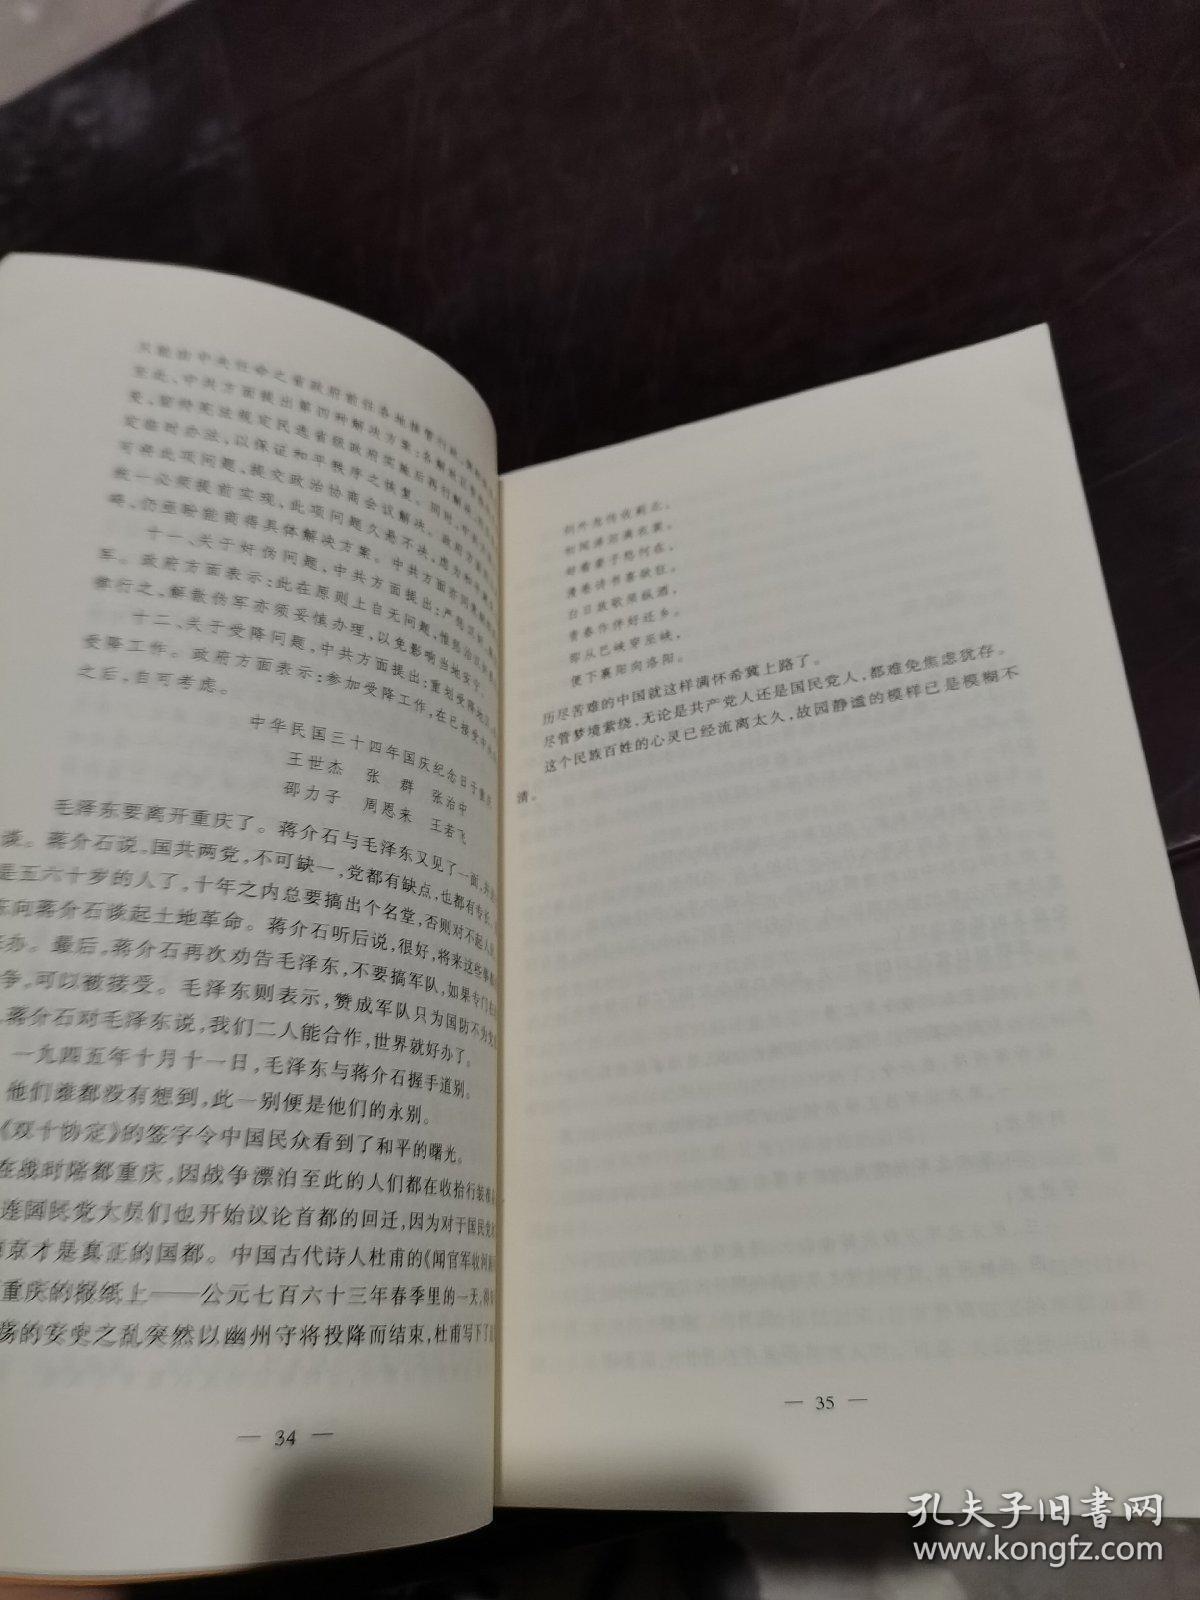 只能由中央任命之省政府前往各地接管行政
至此，中共方面提出第四种解决方案：各解放区
变，留待宪法规定民选省级政府实施后再行解决，
定临时办法，以保证和平秩序之恢复。同时，中共方
可将此项问题，提交政治协商会议解决。政府方面
统一必须提前实现，此项问题久悬不决，虑为和平
碍，仍亟盼能商得具体解决方案。中共方面亦同意
十一、关于奸伪问题，中共方面提出：严惩汉奸，解散伪
军。政府方面表示：此在原则上自无问题，惟惩治汉奸
律行之，解散伪军亦须妥慎办理，以免影响当地安宁。
十二、关于受降问题，中共方面提出：重划受降地区，
受降工作。政府方面表示：参加受降工作，在已接受中央
之后，自可考虑。
中华民国三十四年国庆纪念日于重庆
王世杰 张 群 张治中
邵力子 周恩来 王若飞
毛泽东要离开重庆了。蒋介石与毛泽东又见了一面，
谈。蒋介石说，国共两党，不可缺一，党都有缺点，也都有专长。
是五六十岁的人了，十年之内总要搞出个名堂，否则对不起人
东向蒋介石谈起土地革命。蒋介石听后说，很好，将来这些事都
办。最后，蒋介石再次劝告毛泽东，不要搞军队，如果专门在
争，可以被接受。毛泽东则表示，赞成军队只为国防不为党
蒋介石对毛泽东说，我们二人能合作，世界就好办了。
一九四五年十月十一日，毛泽东与蒋介石握手道别。
他们谁都没有想到，此一别便是他们的永别。
《双十协定》的签字令中国民众看到了和平的曙光。
在战时陪都重庆，因战争漂泊至此的人们都在收拾行装准
连国民党大员们也开始议论首都的回迁，因为对于国民党
南京才是真正的国都。中国古代诗人杜甫的《闻官军收河
重庆的报纸上——公元七百六十三年春季里的一天，
荡的安史之乱突然以幽州守将投降而结束，杜甫写下了
— 34 —
剑外忽传收蓟北，
初闻涕泪满衣裳。
却看妻子愁何在，
漫卷诗书喜欲狂。
白日放歌须纵酒，
青春作伴好还乡。
即从巴峡穿巫峡，
便下襄阳向洛阳。
历尽苦难的中国就这样满怀希冀上路了。
尽管梦境萦绕，无论是共产党人还是国民党人，都难免焦虑犹存。
这个民族百姓的心灵已经流离太久，故园静谧的模样已是模糊不
清。
— 35 —
孔夫子旧书网
www.kongfz.com